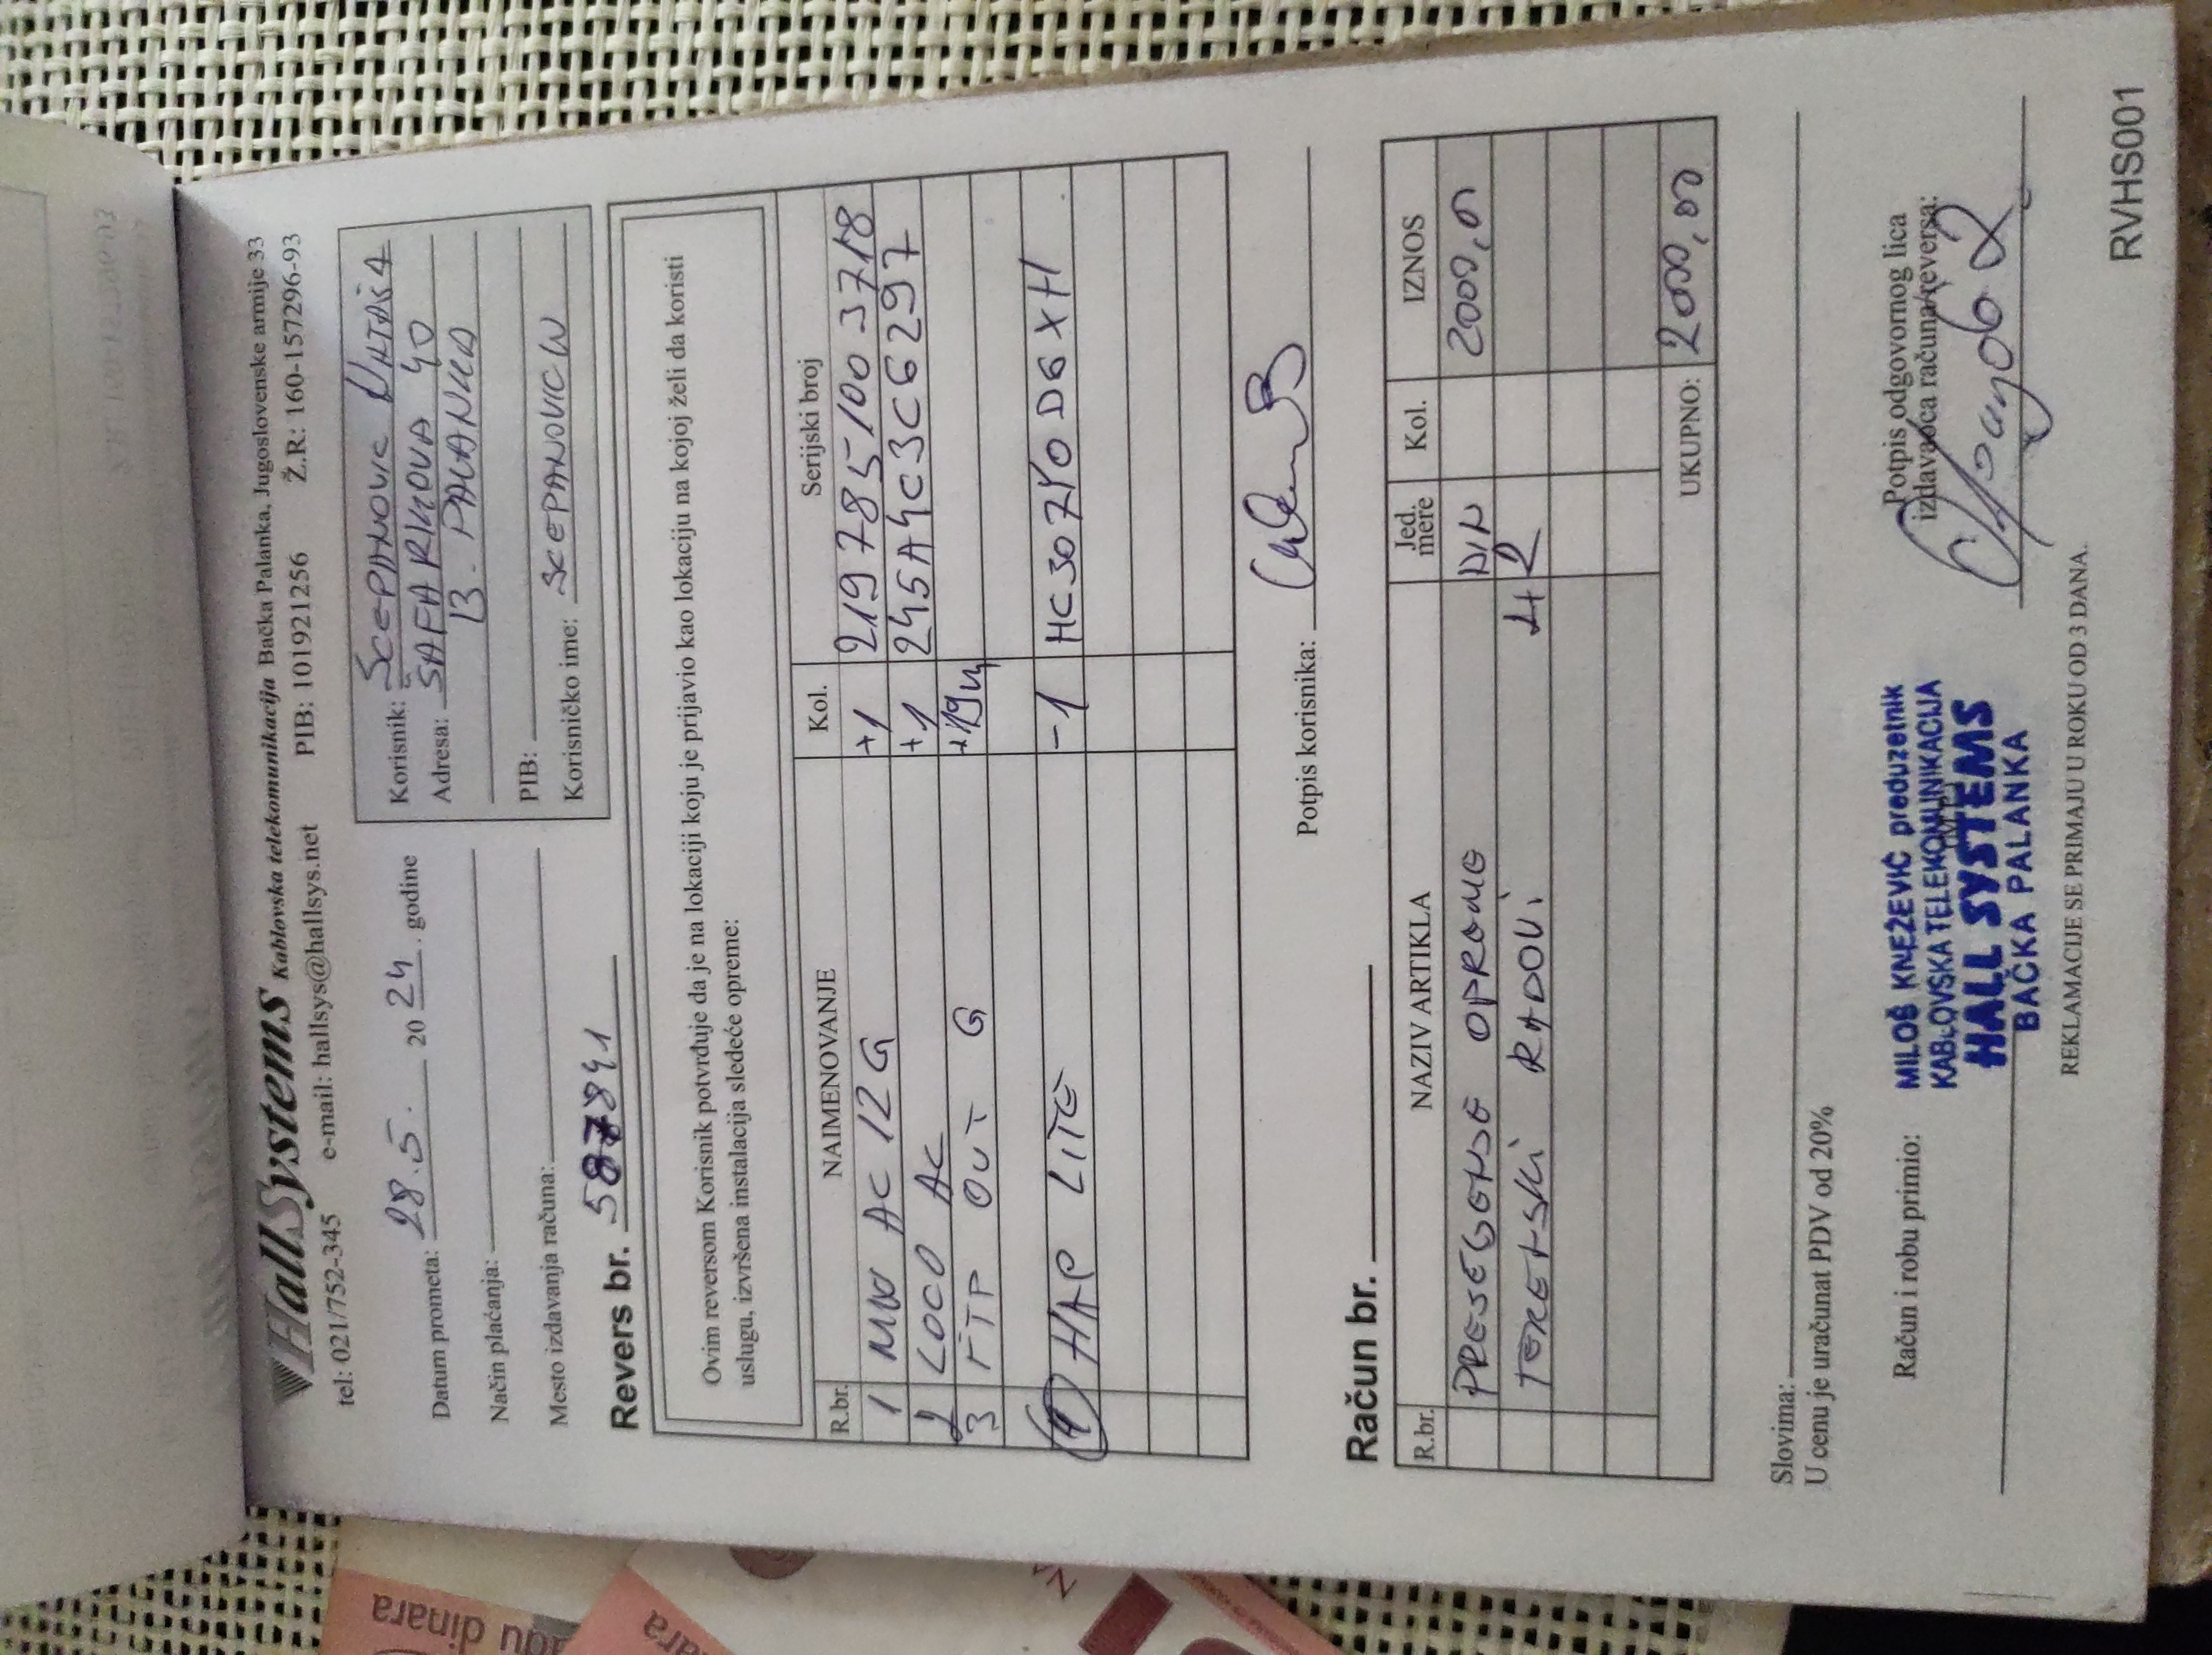 HallSystems Kablovska telekomunikacija Bačka Palanka, Jugoslovenske armije 33
tel: 021/752-345 e-mail: hallsys@hallsys.net PIB: 101921256 Ž.R: 160-157296-93
Datum prometa: 28.5. 2024. godine
Način plaćanja:
Mesto izdavanja računa:
Korisnik: SCEPANOVIC
Adresa: SAFARIKOVA 40
B. PALANKA
PIB:
Korisničko ime: SCEPANOVICW
Revers br. 587841
Ovim reversom Korisnik potvrđuje da je na lokaciji koju je prijavio kao lokaciju na kojoj želi da koristi
uslugu, izvršena instalacija sledeće opreme:
R.br. NAIMENOVANJE Kol. Serijski broj
1 AC 12G +1 2197851003718
2 LOCO AC +1 245A4C3C6297
3 FTP OUT G
1 HAP LITE -1 HC307Y0D6XH
Potpis korisnika:
Račun br.
R.br. NAZIV ARTIKLA Jed. mere Kol. IZNOS
OPREME DIN 2000,00
RADOVI
UKUPNO: 2000,00
Slovima:
U cenu je uračunat PDV od 20%
Račun i robu primio:
MILOŠ KNEŽEVIĆ preduzetnik
KABLOVSKA TELEKOMUNIKACIJA
HALL SYSTEMS
BAČKA PALANKA
Potpis odgovornog lica
izdavaoca računa/reversa:
REKLAMACIJE SE PRIMAJU U ROKU OD 3 DANA.
RVHS001
dinara